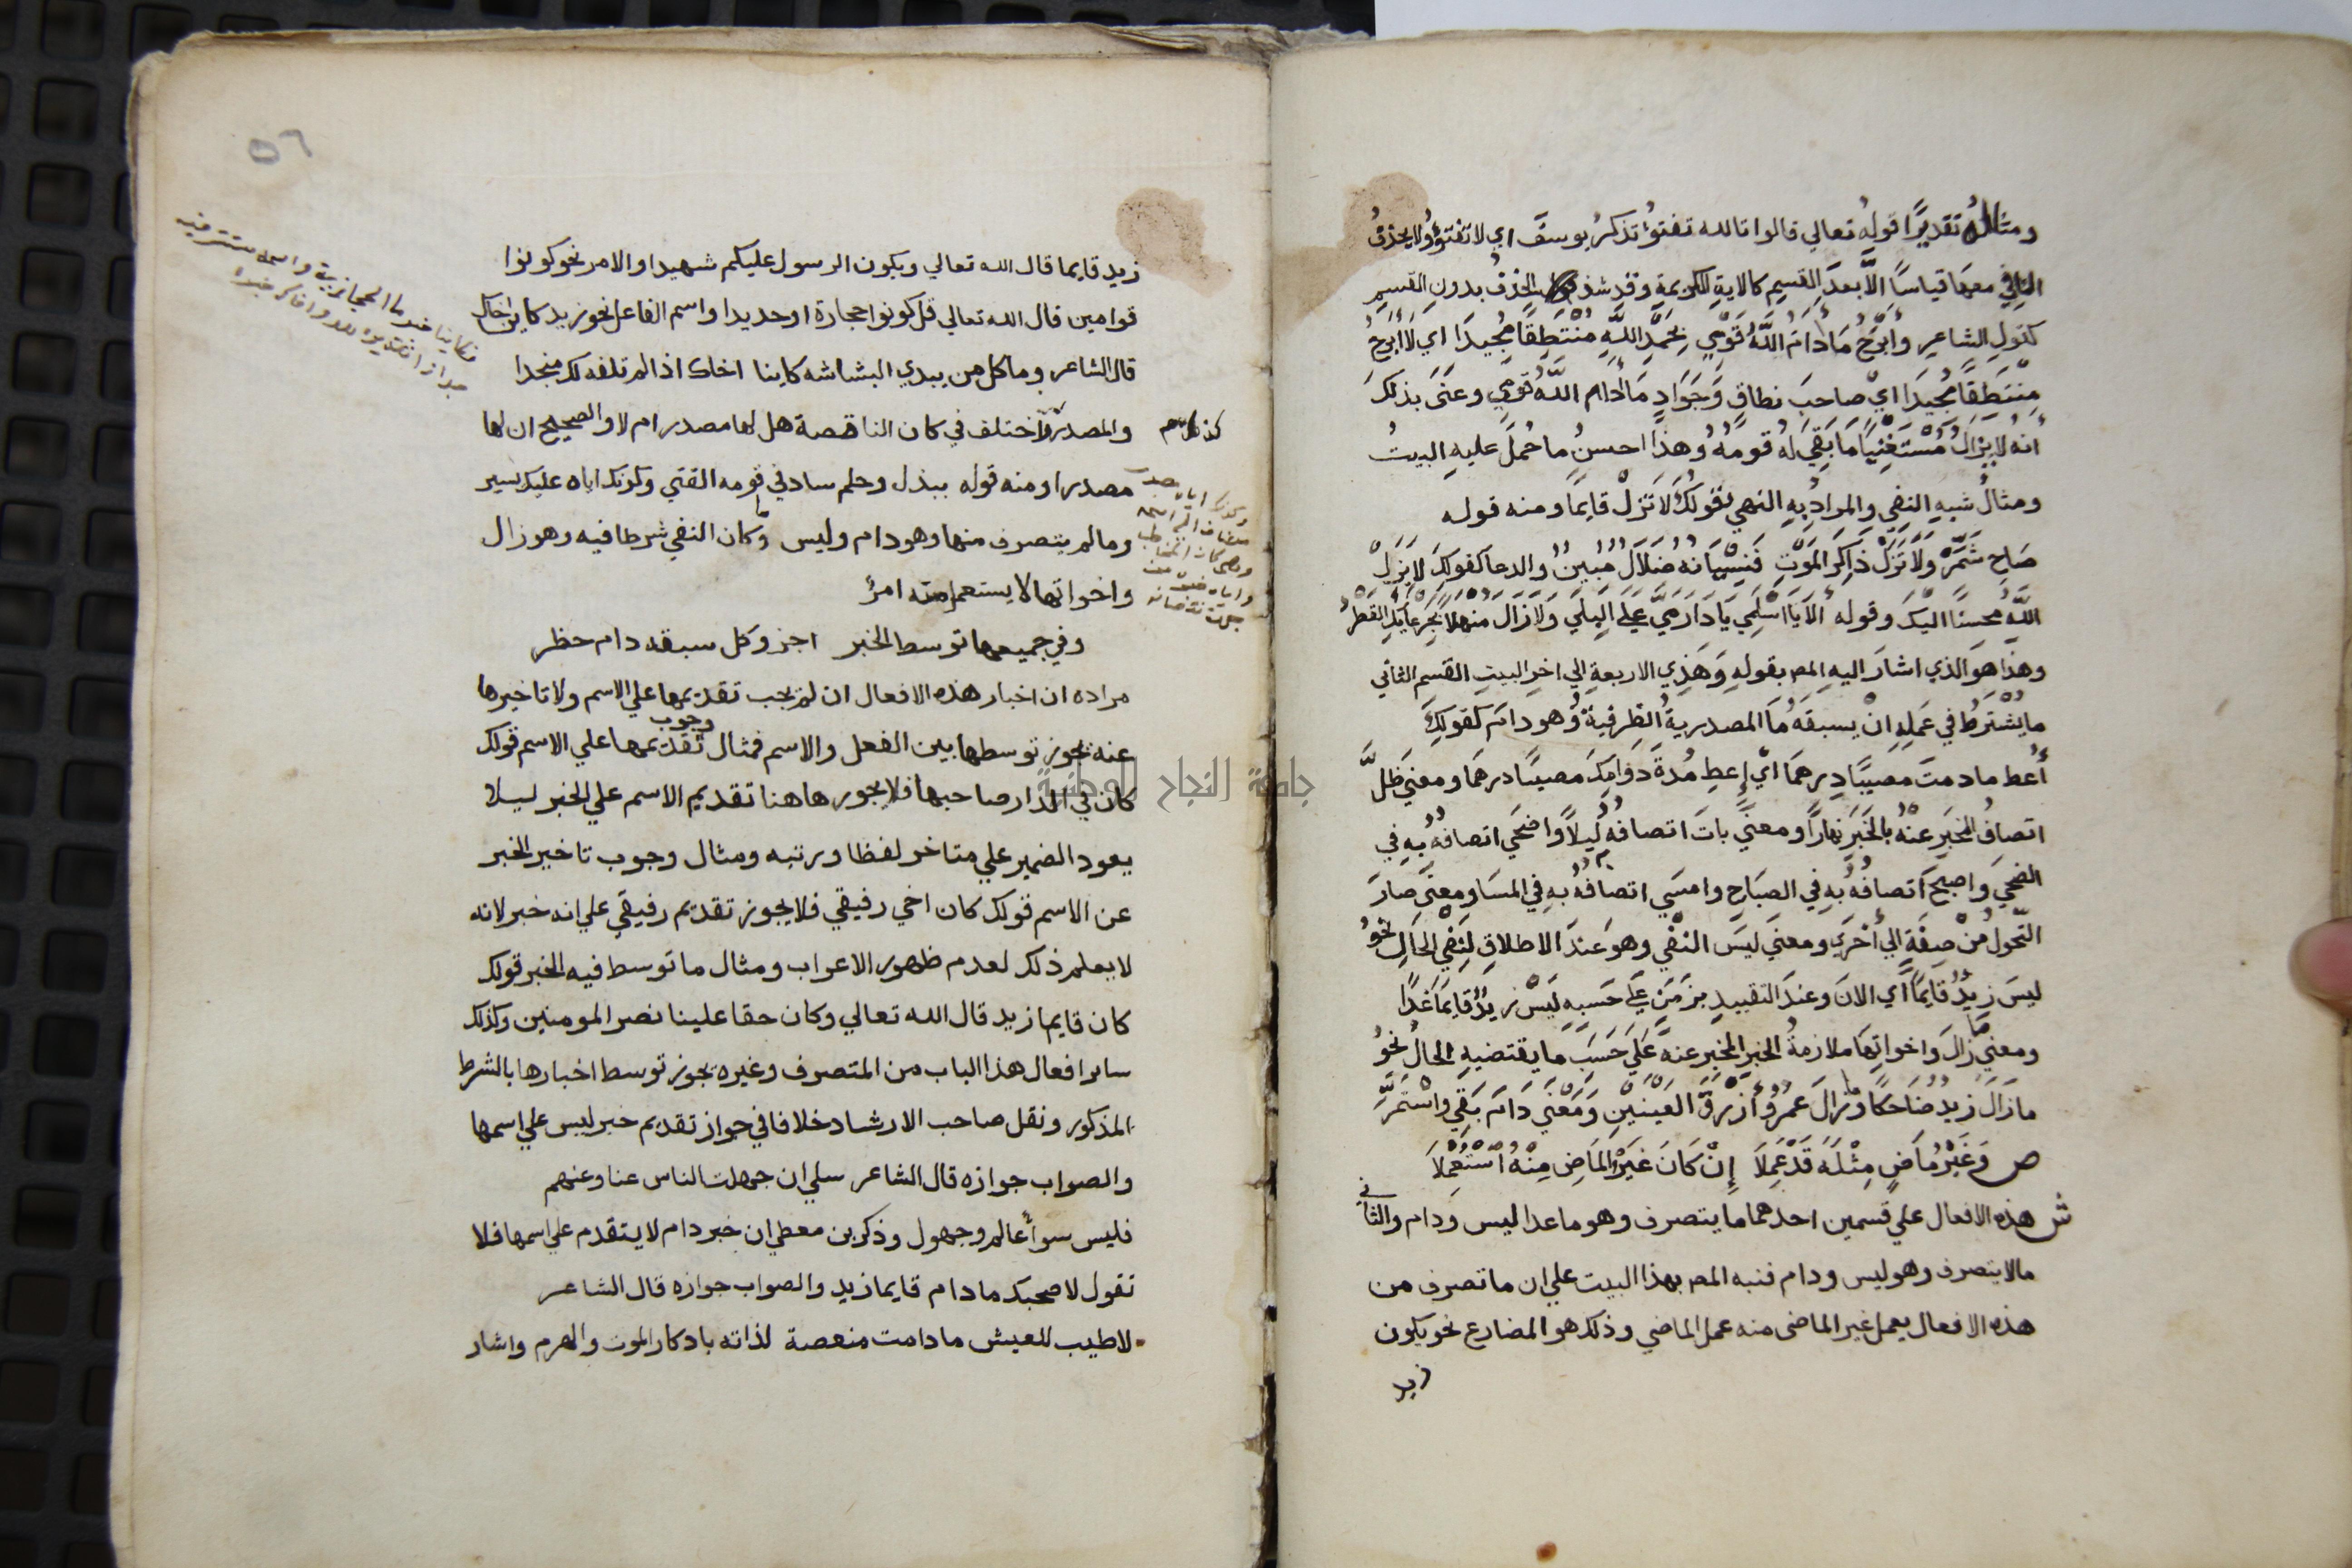 ومثاله تقديرًا قوله تعالي قالوا تالله تفتؤ تذكر يوسف اي لا تفتؤ ولا يحذف
النافي معها قياسًا الا بعد القسم كالاية الكريمة وقد شذ الحذف بدون القسم
كقول الشاعر وابرح ما ادام الله قومي بحمد الله منتطقا مجيدا اي لا ابرح
منتطقا مجيدا اي صاحب نطاق وجواد ما ادام الله قومي وعنى بذلك
انه لا يزال مستغنيا ما بقي له قومه وهذا احسن ما حمل عليه البيت
ومثال شبه النفي والمراد به النهي نقولك لا تزل قايما ومنه قوله
صاح شمر ولا تزل ذاكر الموت فنسيانه ضلال مبين والدعا كقولك لا يزل
الله محسنا اليك وقوله الا يا اسلمي يا دار مي علي البلي ولا زال منهلا بجرعايك القطر
وهذا هو الذي اشار اليه المص بقوله وهذي الاربعة الي اخر البيت القسم الثاني
ما يشترط في عمله ان يسبقه ما المصدرية الظرفية وهو دام كقولك
أعط ما دمت مصيبا درهما اي اعط مدة دوامك مصيبا درهما ومعني ظل
اتصاف المخبر عنه بالخبر نهارا ومعني بات اتصافه ليلا واضحي اتصافه به في
الضحي واصبح اتصافه به في الصباح وامسي اتصافه به في المسا ومعني صار
التحول من صفة الي أخري ومعني ليس النفي وهو عند الاطلاق لنفي الحال نحو
ليس زيد قايما اي الان وعند التقييد بزمن علي حسبه ليس زيد قايما غدا
ومعني ما زال واخواتها ملازمة الخبر المخبر عنه علي حسب ما يقتضيه الحال نحو
ما زال زيد ضاحكا وما زال عمرو أزرق العينين ومعني دام بقي واستمر
ص وغير ماض مثله قد عملا إن كان غير الماض منه استعملا
ش هذه الافعال علي قسمين احدهما ما يتصرف وهو ما عدا ليس ودام والثاني
مالا يتصرف وهو ليس ودام فنبه المص بهذا البيت علي ان ما تصرف من
هذه الافعال يعمل غير الماضي منه عمل الماضي وذلك هو المضارع نحو يكون
زيد
٥٦
زيد قايما قال الله تعالي ويكون الرسول عليكم شهيدا والامر نحو كونوا
قوامين قال الله تعالي قل كونوا حجارة او حديدا واسم الفاعل نحو زيد كاين اخاك
قال الشاعر وما كل من يبدي البشاشه كاينا اخاك اذا لم تلفه لك منجدا
والمصدر واختلف في كان الناقصة هل لها مصدر ام لا والصحيح ان لها
مصدرا ومنه قوله ببذل وحلم ساد في قومه الفتي وكونك اياه عليك يسير
وما لم يتصرف منها وهو دام وليس وما كان النفي شرطا فيه وهو زال
واخواتها لا يستعمل منه امر
وفي جميعها توسط الخبر اجز وكل سبقه دام حظر
مراده ان اخبار هذه الافعال ان لم يجب تقديمها علي الاسم ولا تاخيرها
عنه يجوز توسطها بين الفعل والاسم فمثال وجوب تقديمها علي الاسم قولك
كان في الدار صاحبها فلا يجوز هاهنا تقديم الاسم علي الخبر ليلا
يعود الضمير علي متاخر لفظا ورتبه ومثال وجوب تاخير الخبر
عن الاسم قولك كان اخي رفيقي فلا يجوز تقديم رفيقي علي انه خبر لانه
لا يعلم ذلك لعدم ظهور الاعراب ومثال ما توسط فيه الخبر قولك
كان قايما زيد قال الله تعالي وكان حقا علينا نصر المومنين وكذلك
ساير افعال هذا الباب من المتصرف وغيره يجوز توسط اخبارها بالشرط
المذكور ونقل صاحب الارشاد خلافا في جواز تقديم خبر ليس علي اسمها
والصواب جوازه قال الشاعر سلي ان جهلت الناس عنا وعنهم
فليس سوأ عالم وجهول وذكر بن معطي ان خبر دام لا يتقدم علي اسمها فلا
تقول لا صحبك ما دام قايما زيد والصواب جوازه قال الشاعر
لا طيب للعيش ما دامت منغصة لذاته بادكار الموت والهرم واشار
جامعة النجاح الوطنية